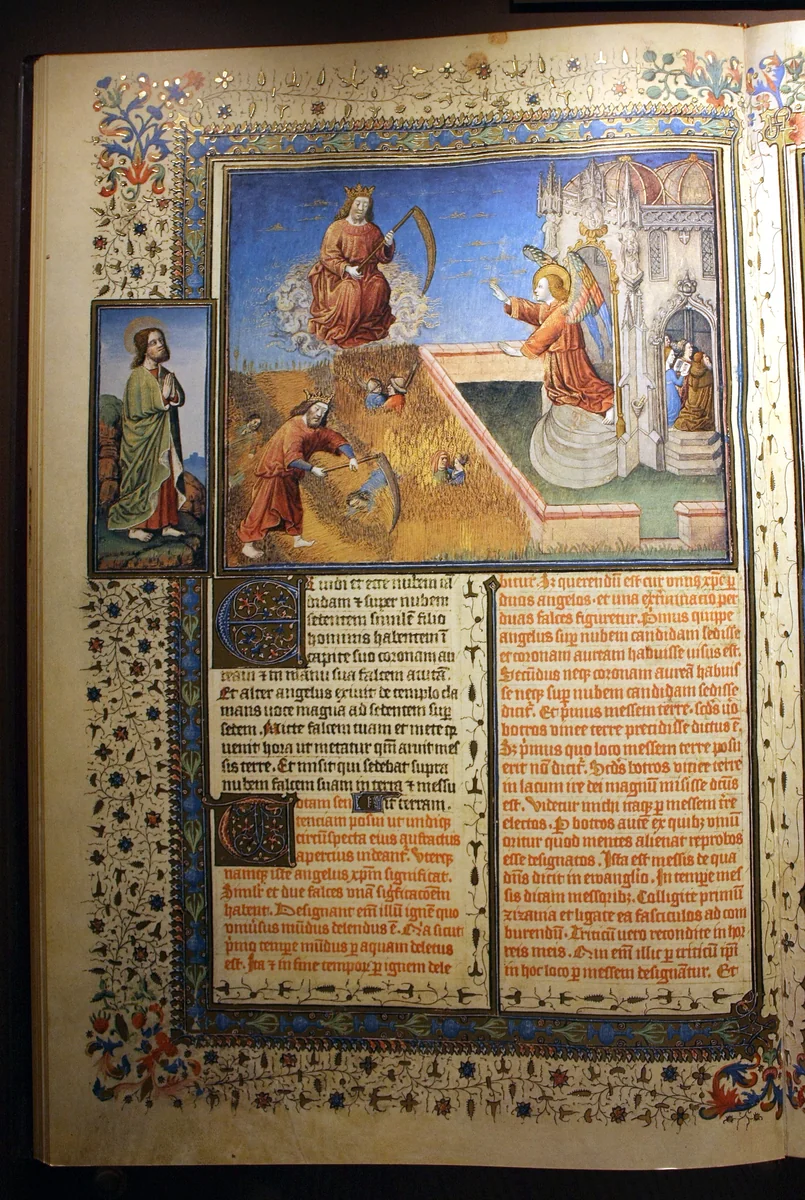 Et vidi et ecce nubem can
didam ⁊ super nubem
sedentem similē filio
hominis habentem ī
capite suo coronam au
ream ⁊ in manu sua falcem acutā.
Et alter angelus exivit de templo cla
mans voce magna ad sedentem sup̄
nubem. Mitte falcem tuam et mete q̄
venit hora ut metatur qm̄ aruit mes
sis terre. Et misit qui sedebat supra
nubem falcem suam in terra ⁊ messu
it terram.
Totam sen
tenciam posui ut undiq̄
circūspecta eius
apercius videant̄. Uterq̄
namq̄ iste angelus xp̄m significat.
Similr̄ et due falces unā sigficacoēm
habent. Designant em̄ illū ignē quo
universus mūdus delendus ē. Na sicut
primo tempe mūdus p aquam deletus
est. Ita ⁊ in fine tempor p ignem dele
bitur. Iz querendū est cur unus xp̄c p
duos angelos et una per
duas falces figuretur. Primus quippe
angelus sup̄ nubem candidam sedisse
et coronam auream habuisse visus est.
Secūdus neq̄ coronam aureā habuis
se neq̄ sup̄ nubem candidam sedisse
dicit̄. Et primus messem terre. scd̄s v̄o
botros vinee terre precidisse dictus ē.
Iz p̄mus quo loco messem terre posu
erit nō dicit̄. Scd̄s botros vinee terre
in lacum ire dei magnū misisse dcūs
est. Videtur michi itaq̄ p messem tre
electos. P botros autē ex quibz vinū
oritur quod mentes alienat reprobos
esse designatos. Ista est messis de qua
dn̄s dicit in ewanglio. In tempe mes
sis dicam messoribz. Colligite primū
zizania et ligate ea fasciculos ad com
burendū. Triticū vero recondite in hor
reis meis. em̄ illic p triticū ipi
in hoc loco p messem designātur. Et